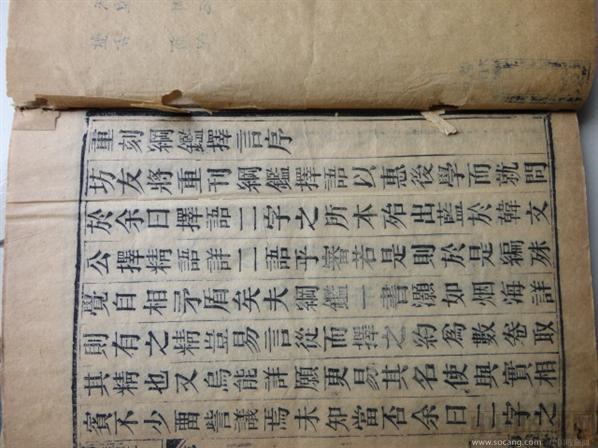 重刻綱鑑擇言序
坊友將重刊綱鑑擇語以惠後學而就問
於余曰擇語二字之所本殆出藍於韓文
公擇精語詳二語乎審若是則於是編殊
覺自相矛盾矣夫綱鑑一書灝如烟海詳
則有之精豈易言從而擇之約爲數卷取
其精也又烏能詳願更易其名使與實相
賓不少訾議焉未知當否余曰二字之
www.socang.com